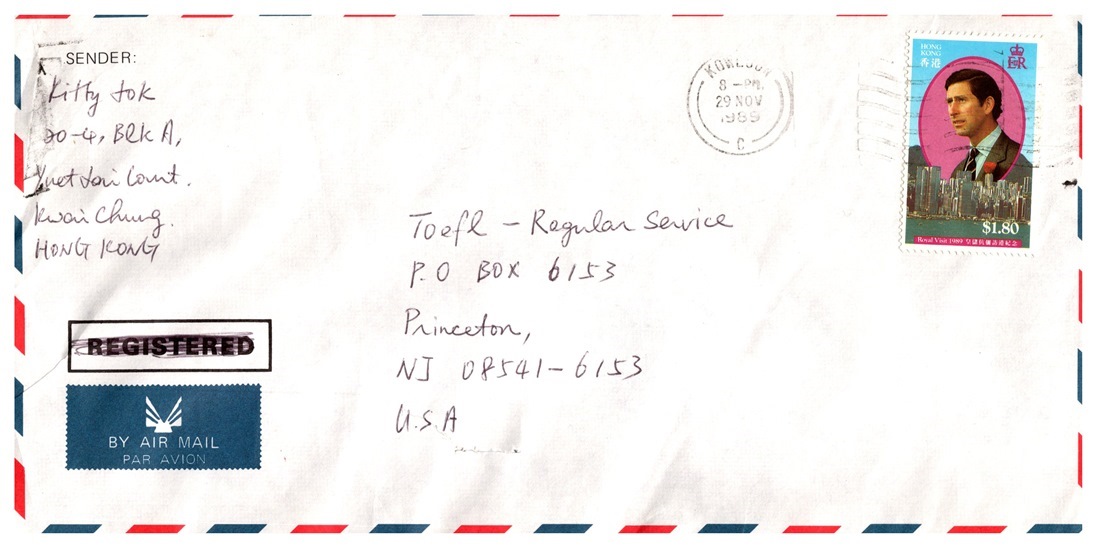 SENDER:
Kitty Tok
20-4, Blk A,
Yuet Lai Court.
Kwai Chung.
HONG KONG
REGISTERED
BY AIR MAIL
PAR AVION
KOWLOON
8 - PM.
29 NOV
1989
C
HONG
KONG
香港
E II R
$1.80
Royal Visit 1989 皇儲伉儷訪港紀念
Toefl - Regular Service
P.O BOX 6153
Princeton,
NJ 08541-6153
U.S.A